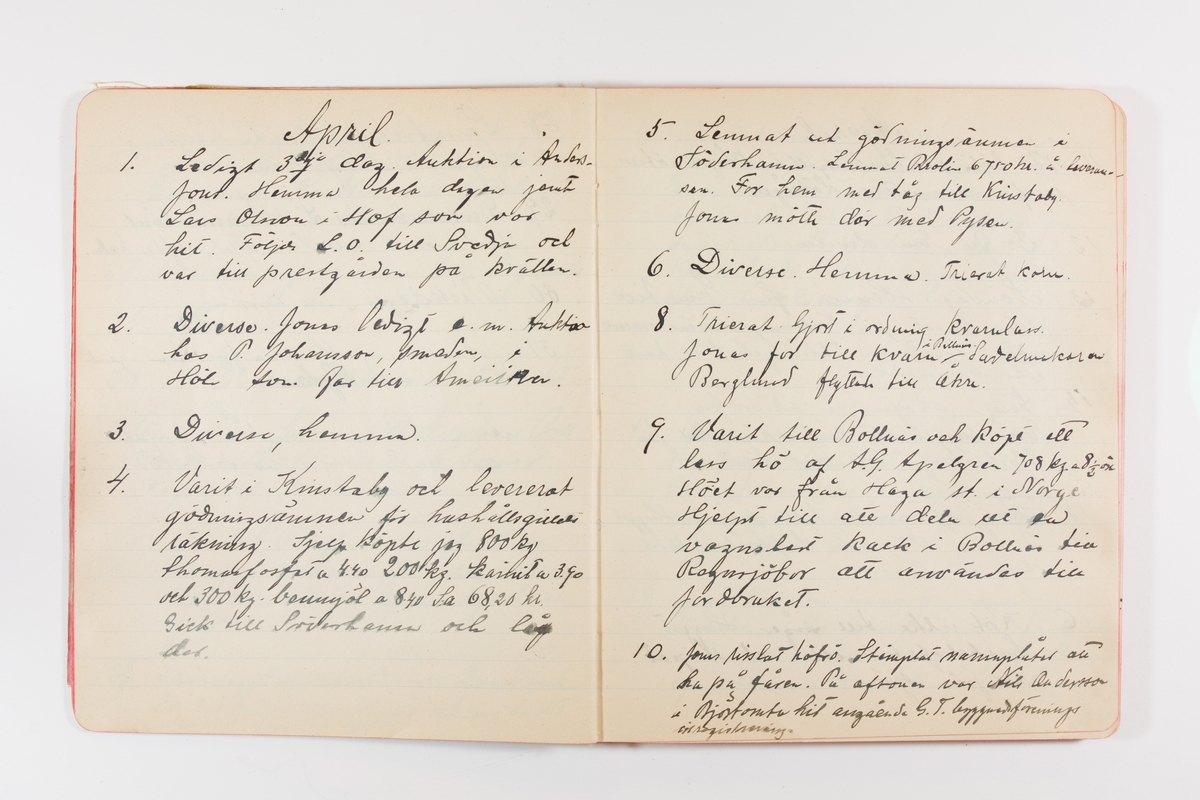 April.
1. Ledigt 3dje dag. Auktion i Anders-
fors. Hemma hela dagen jemt
Lars Olsson i Hof som var
hit. Följde L.O. till Svedja och
var till prestgården på kvällen.
2. Diverse. Jonas ledigt e.m. Auktion
hos P. Johansson, smeden, i
Höle som far till Amerika.
3. Diverse, hemma.
4. Varit i Kinstaby och levererat
gödningsämnen för hushållsgillets
räkning. Sjelf köpte jag 800 kg
Thomasfosfat a 4.40 200 kg. kainit a 3.90
och 300 kg. benmjöl a 8.40 S:a 68,20 kr.
Gick till Söderhamn och låg
der.
5. Lemnat ut gödningsämnen i
Söderhamn. Lemnat 6750 kr. å leveran-
sen. For hem med tåg till Kinstaby.
Jonas mötte där med Pysen.
6. Diverse. Hemma. Trierat korn.
8. Trierat. Gjort i ordning kvarnlass.
Jonas for till kvarn i Bollnäs Sadelmakaren
Berglund flyttade till Åkre.
9. Varit till Bollnäs och köpt ett
lass hö af A.G. Apelgren 708 kg a 8½ öre
Höet var från Haga st. i Norge
Hjelpt till att dela ut en
vagnslast kalk i Bollnäs till
Rengsjöbor att användas till
jordbruket.
10. Jonas risslat höfrö. Stämplat namnplåtar att
ha på fåren. På aftonen var Nils Andersson
i Björtomta hit angående G.T. byggnadsförenings
inregistrering.